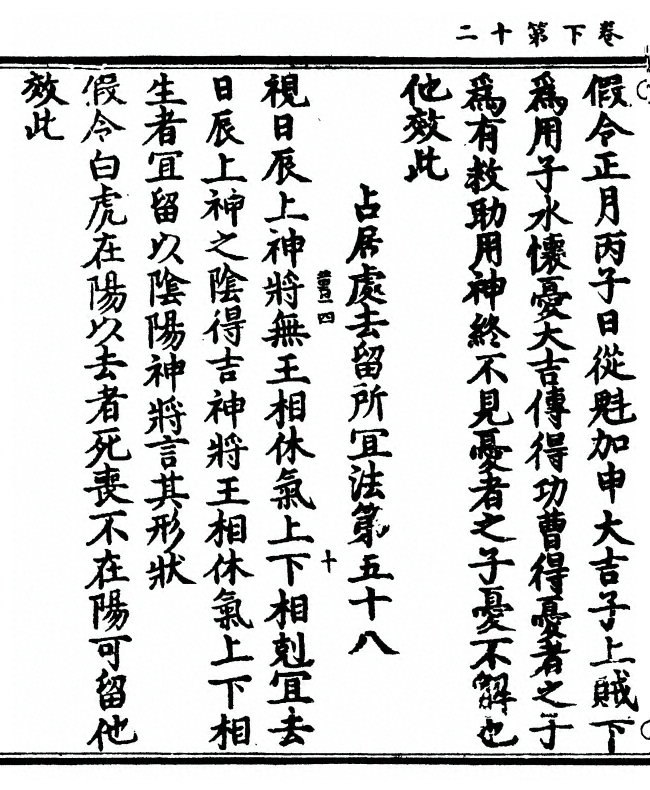 卷下第十二
假令正月丙子日從魁加申大吉子上賊下
為用子水懷憂大吉傳得功曹得憂者之子
為有救助用神終不見憂者之子憂不解也
他效此
占居處去留所冝法第五十八
視日辰上神將無王相休氣上下相剋冝去
日辰上神之陰得吉神將王相休氣上下相
生者冝留以陰陽神將言其形狀
假令白虎在陽以去者死喪不在陽可留他
效此
四
十